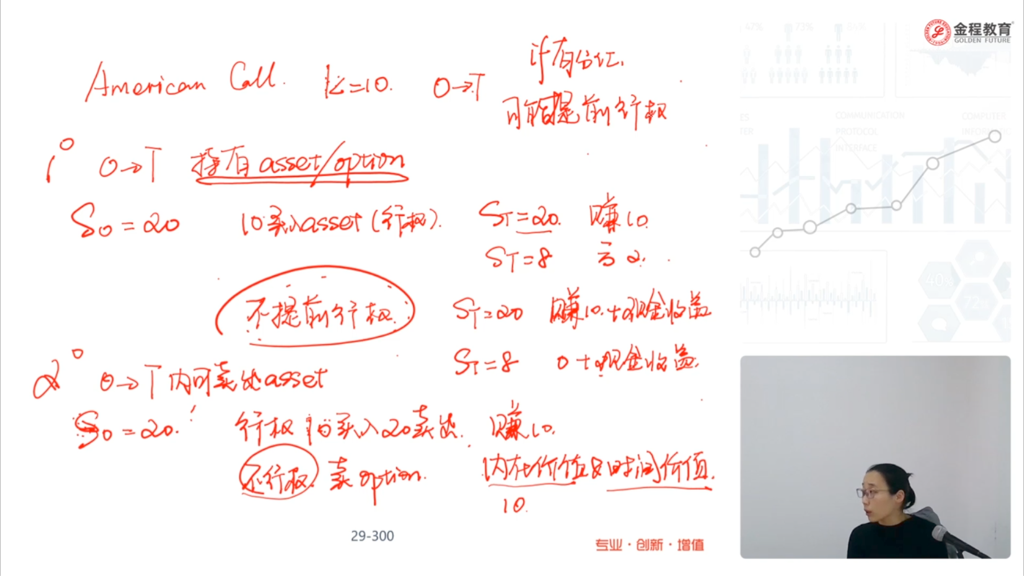 金程教育
GOLDEN FUTURE
American Call. K=10. 0→T
if有分红.
可能提前行权
1° 0→T 持有asset/option
S0=20 10买入asset(行权). ST=20. 赚10.
ST=8 亏2.
不提前行权. ST=20 赚10.+现金收益
ST=8 0+现金收益.
2° 0→T内可卖出asset
S0=20. 行权 10买入20卖出. 赚10.
不行权. 卖option. 内在价值&时间价值.
10.
29-300
专业·创新·增值